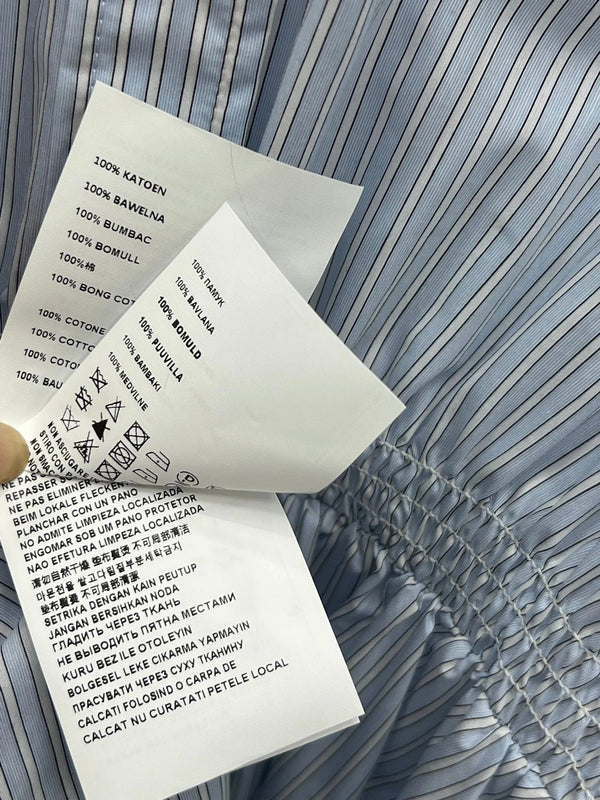 100% KATOEN
100% BAWELNA
100% BUMBAC
100% BOMULL
100%棉
100% BONG COT
100% COTONE
100% COTTO
100% COTO
100% BAU
100% ПАМУК
100% BAVLANA
100% BOMULD
100% PUUVILLA
100% BAMBAKI
100% MEDVILNE
P
NON ASCIUGARE
STIRO CON
NON SMAC
NE PAS
REPASSER
NE PAS ELIMINER
BEIM LOKALE FLECKEN
PLANCHAR CON UN PANO
NO ADMITE LIMPIEZA LOCALIZADA
ENGOMAR SOB UM PANO PROTETOR
NAO EFETURA LIMPEZA LOCALIZADA
请勿自然干燥 垫布熨烫 不可局部清洁
마른천을 깔고다림질부분세탁금지
垫布熨烫 不可局部清洁
SETRIKA DENGAN KAIN PEUTUP
JANGAN BERSIHKAN NODA
ГЛАДИТЬ ЧЕРЕЗ ТКАНЬ
НЕ ВЫВОДИТЬ ПЯТНА МЕСТАМИ
KURU BEZ ILE OTOLEYIN
BOLGESEL LEKE CIKARMA YAPMAYIN
ПРАСУВАТИ ЧЕРЕЗ СУХУ ТКАНИНУ
CALCATI FOLOSIND O CARPA DE
CALCAT NU CURATATI PETELE LOCAL